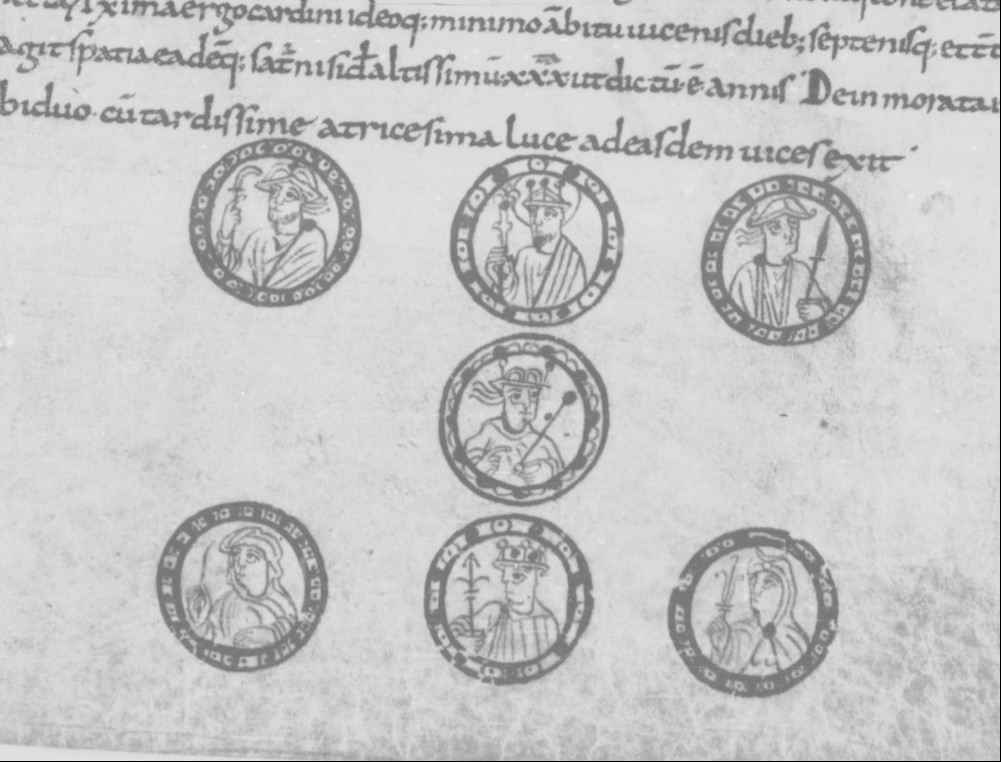 xima ergo cardini ideoq; minimo ābitu uicenis dieb; septenisq; et
agit spatia eadēq; satr̄ni sid̄ altissimū xxx ut dictū ē annis Dein morata
biduo cū tardissime a tricesima luce ad easdem uices exit